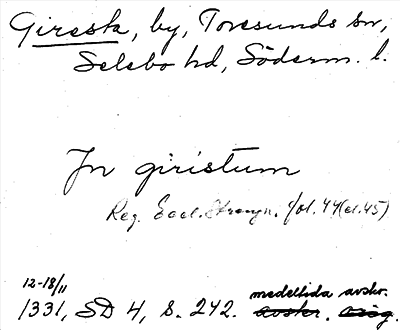 Giresta, by, Toresunds sn,
Selebo hd, Söderm. l.
Jn giristum
Reg. Eccl. Strengn. fol. 44 (el. 45)
12-18/11
medeltida avskr.
1331, SD 4, s. 242. avskr. orig.